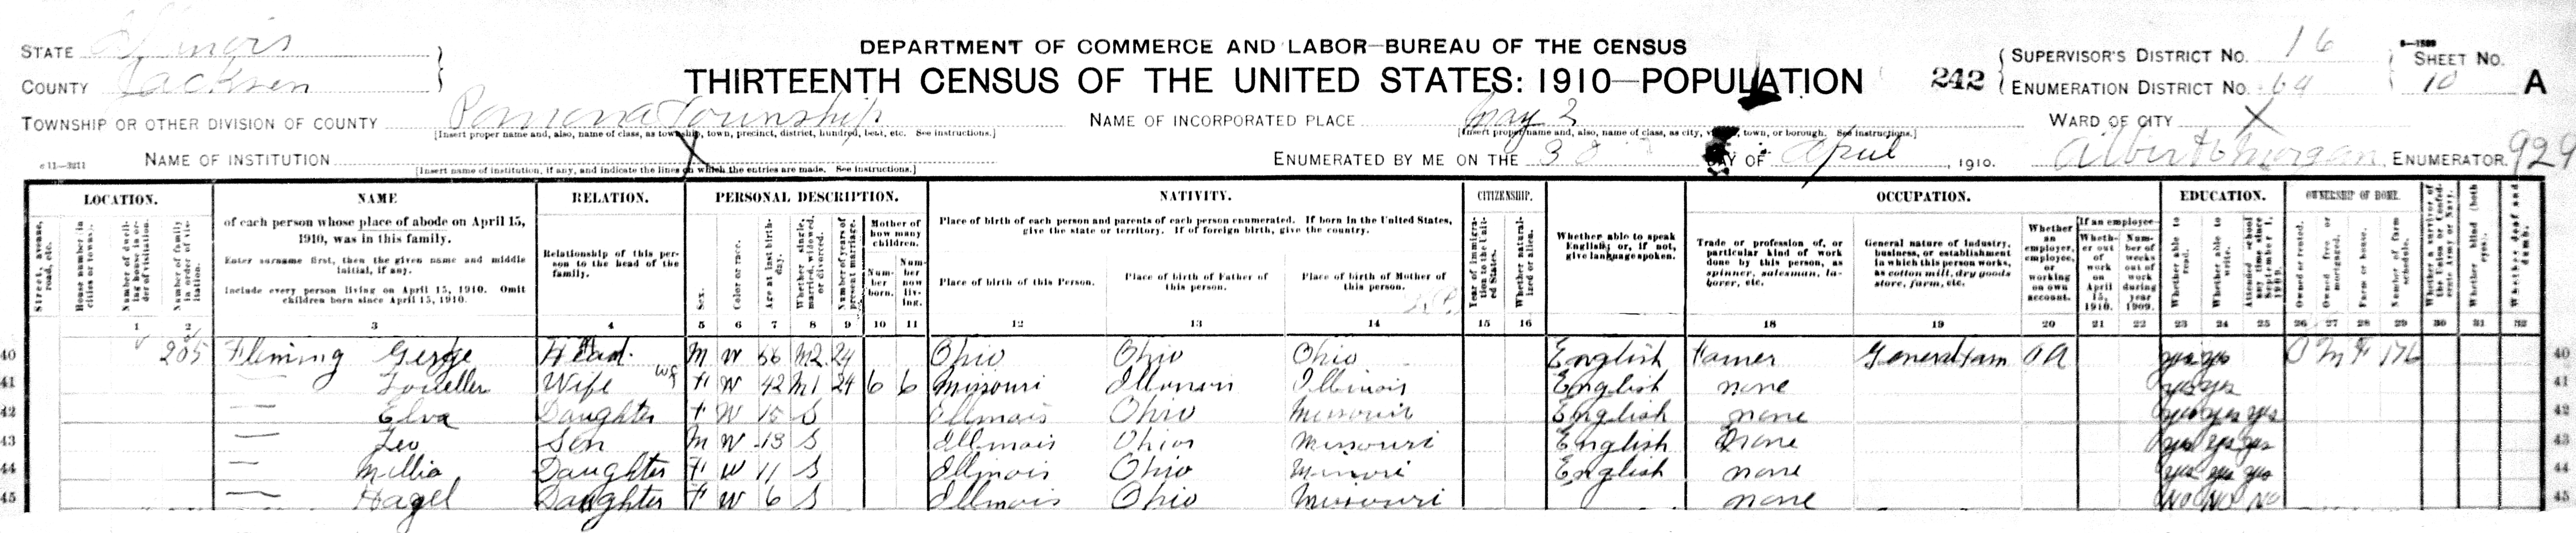 STATE Illinois
COUNTY Jackson
DEPARTMENT OF COMMERCE AND LABOR—BUREAU OF THE CENSUS
THIRTEENTH CENSUS OF THE UNITED STATES: 1910—POPULATION
242
SUPERVISOR'S DISTRICT No. 16
ENUMERATION DISTRICT No. 64
SHEET No. 10 A
TOWNSHIP OR OTHER DIVISION OF COUNTY Pomona Township
[Insert proper name and, also, name of class, as township, town, precinct, district, hundred, beat, etc. See instructions.]
NAME OF INCORPORATED PLACE May 2
[Insert proper name and, also, name of class, as city, village, town, or borough. See instructions.]
WARD OF CITY X
NAME OF INSTITUTION X
[Insert name of institution, if any, and indicate the lines on which the entries are made. See instructions.]
ENUMERATED BY ME ON THE 30 DAY OF April, 1910.
Morgan, ENUMERATOR. 929
LOCATION.
Street, avenue, road, etc.
House number (in cities or towns).
Number of dwelling house in order of visitation.
Number of family in order of visitation.
NAME
of each person whose place of abode on April 15, 1910, was in this family.
Enter surname first, then the given name and middle initial, if any.
Include every person living on April 15, 1910. Omit children born since April 15, 1910.
RELATION.
Relationship of this person to the head of the family.
PERSONAL DESCRIPTION.
Sex.
Color or race.
Age at last birthday.
Whether single, married, widowed, or divorced.
Number of years of present marriage.
Mother of how many children.
Number born.
Number now living.
NATIVITY.
Place of birth of each person and parents of each person enumerated. If born in the United States, give the state or territory. If of foreign birth, give the country.
Place of birth of this Person.
Place of birth of Father of this person.
Place of birth of Mother of this person.
CITIZENSHIP.
Year of immigration to the United States.
Whether naturalized or alien.
Whether able to speak English; or, if not, give language spoken.
OCCUPATION.
Trade or profession of, or particular kind of work done by this person, as spinner, salesman, laborer, etc.
General nature of industry, business, or establishment in which this person works, as cotton mill, dry goods store, farm, etc.
Whether an employer, employee, or working on own account.
If an employee—
Whether out of work on April 15, 1910.
Number of weeks out of work during year 1909.
EDUCATION.
Whether able to read.
Whether able to write.
Attended school any time since September 1, 1909.
OWNERSHIP OF HOME.
Owned or rented.
Owned free or mortgaged.
Farm or house.
Number of farm schedule.
Whether a survivor of the Union or Confederate Army or Navy.
Whether blind (both eyes).
Whether deaf and dumb.
1 2 3 4 5 6 7 8 9 10 11 12 13 14 15 16 18 19 20 21 22 23 24 25 26 27 28 29 30 31 32
40 205 Fleming George Head M W 56 M2 24 Ohio Ohio Ohio English Farmer General Farm OA yes yes O M F 176 40
41 — Wife F W 42 M1 24 6 6 Missouri Illinois Illinois English none yes yes 41
42 — Elva Daughter F W 15 S Illinois Ohio Missouri English none yes yes yes 42
43 — Leo Son M W 13 S Illinois Ohio Missouri English none yes yes yes 43
44 — Millia Daughter F W 11 S Illinois Ohio Missouri English none yes yes yes 44
45 — Hazel Daughter F W 6 S Illinois Ohio Missouri none No No No 45